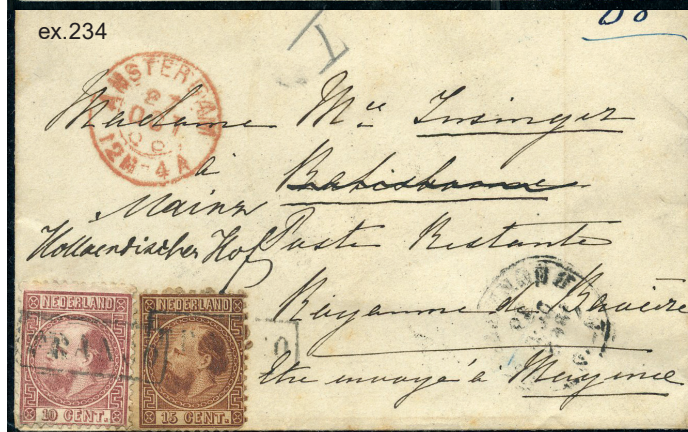 ex.234
AMSTERDAM
OCT
12M-4A
Madame Mce Insinger
à
Ratisbonne
Mainz
Hollaendischer Hof Poste Restante
Royaume de Bavière
Etre envoyé à Mayence
NEDERLAND
10 CENT.
NEDERLAND
15 CENT.
FRANCO